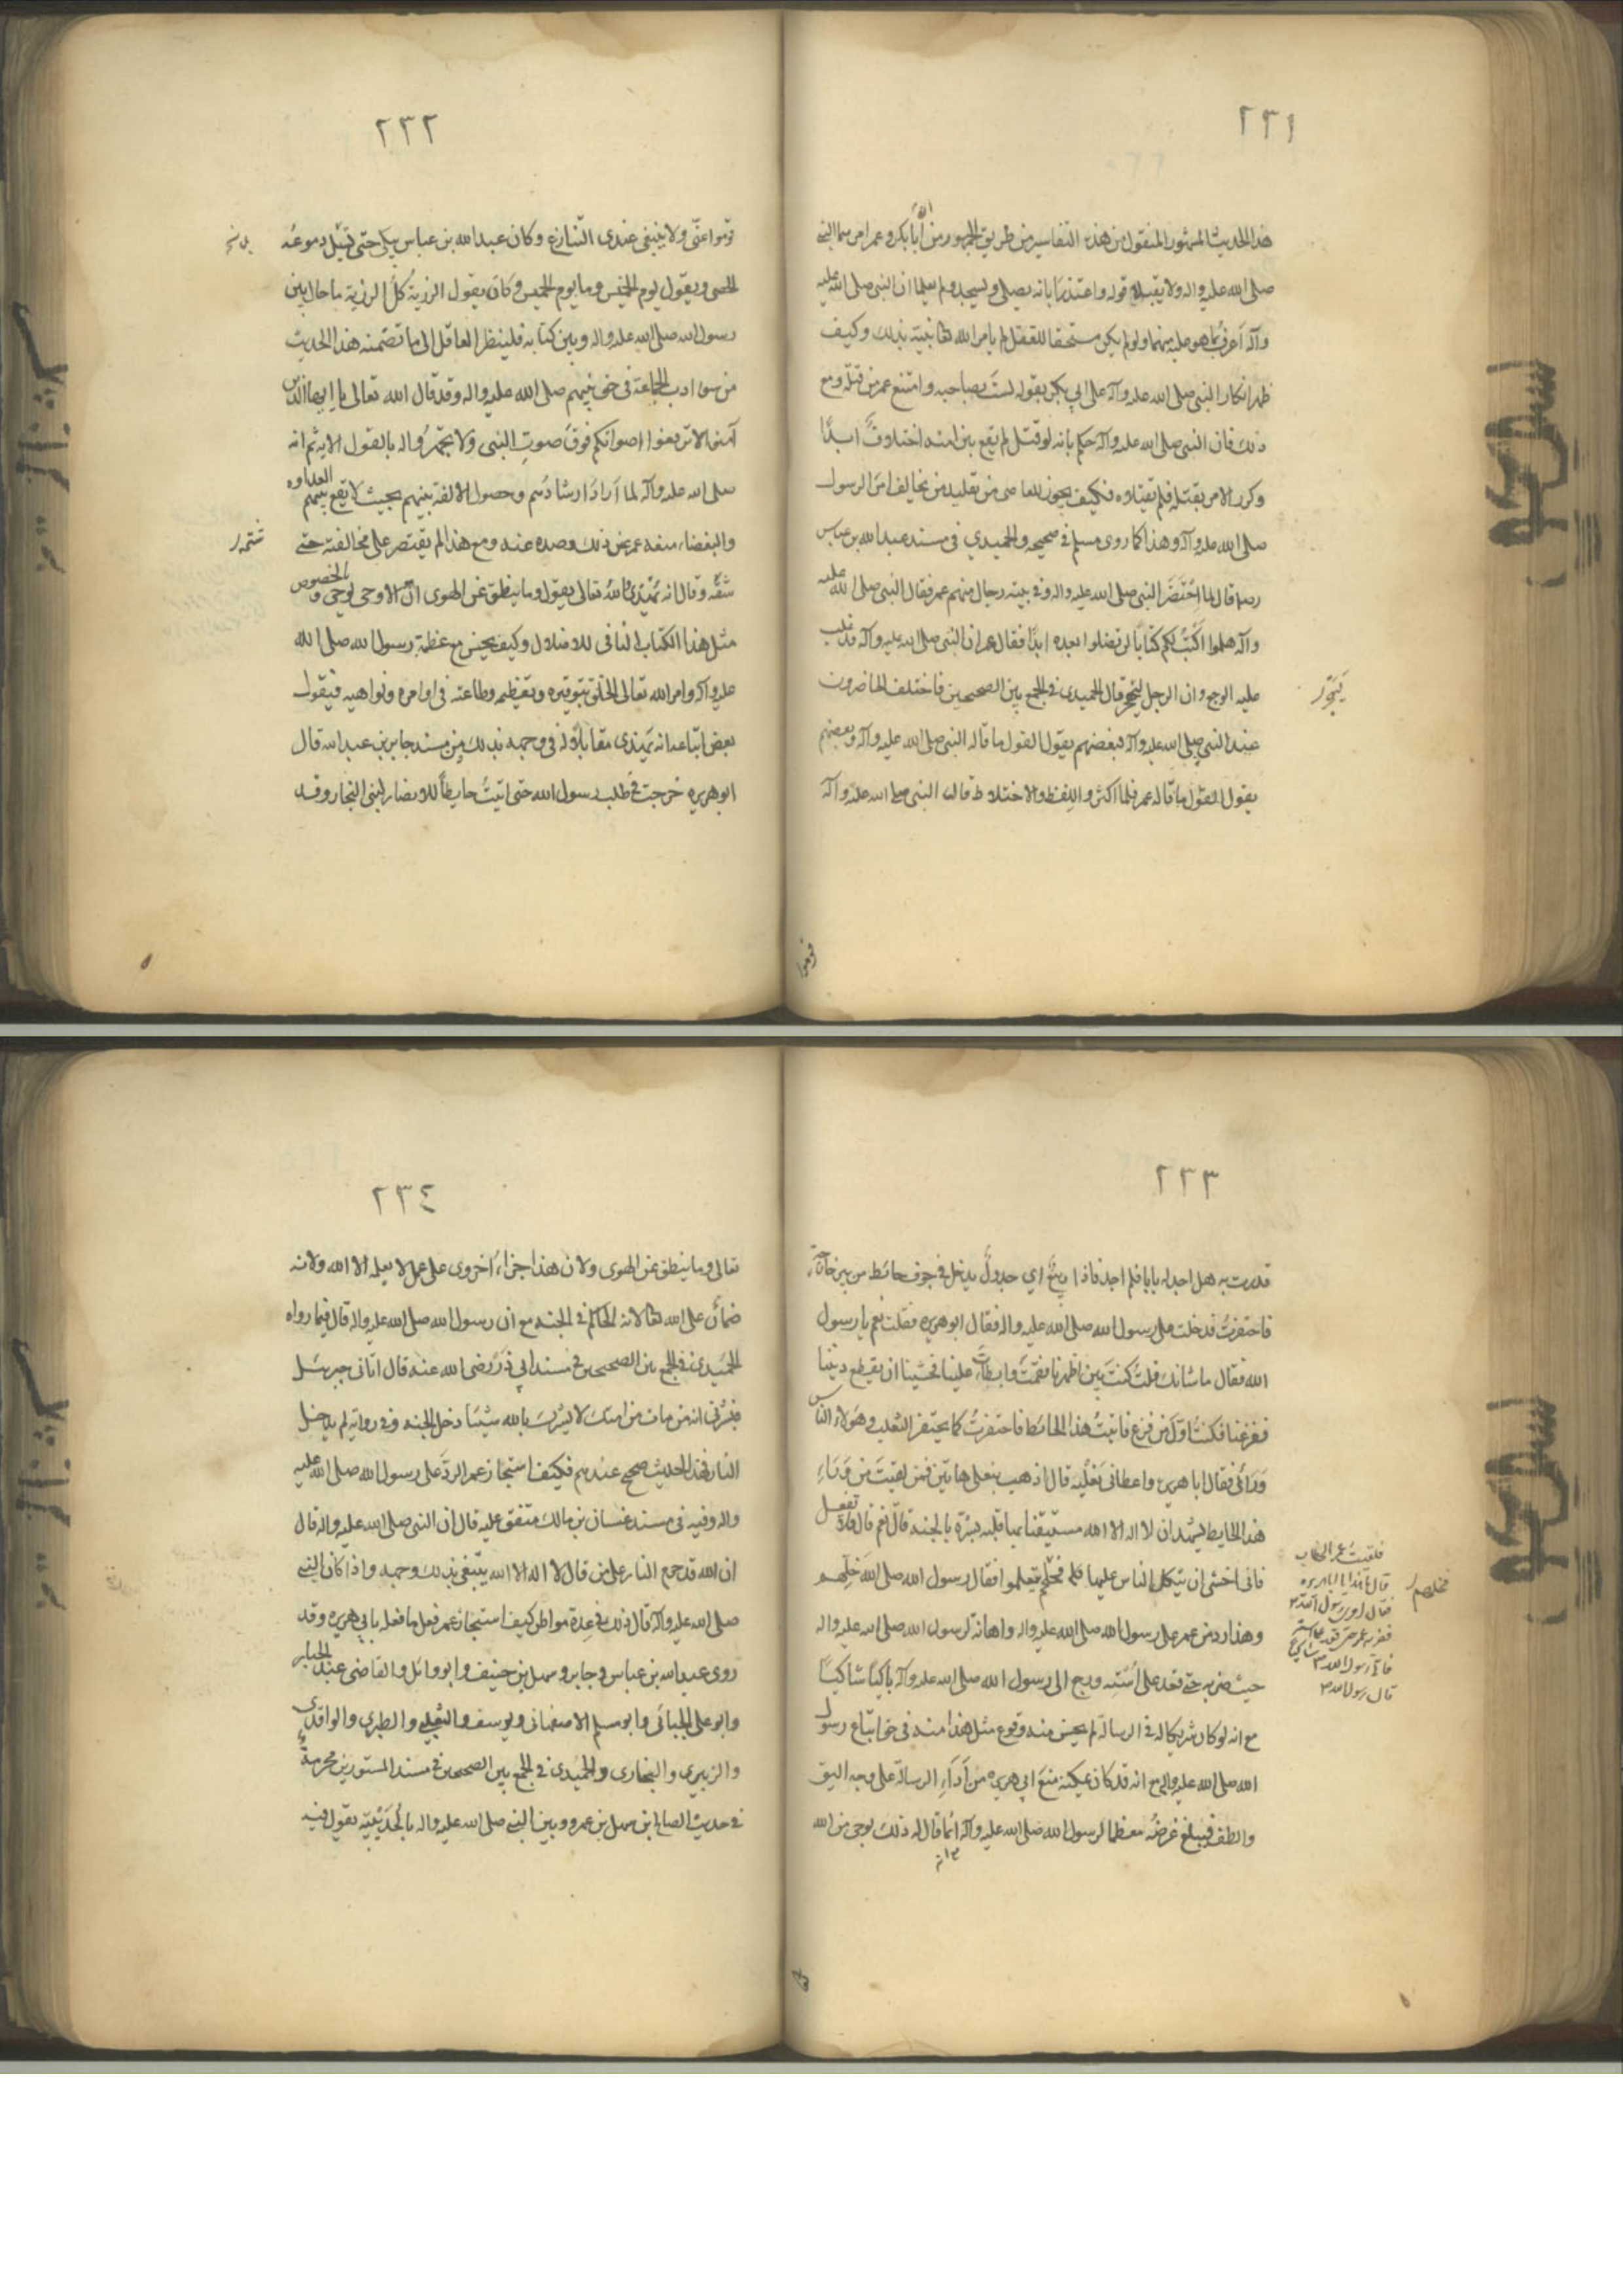 ٢٣١
هذا الحديث المشهور المنقول من هذه التفاسير من طريق الجمهور من أن أبا بكر وعمر امرهما النبي
صلى الله عليه واله ولا يقبلا قوله واعتذرا بانه يصلى ويسجد ولم يعلما ان النبي صلى الله عليه
وآله أعرف بما هو عليه منهما ولو لم يكن مستحقا للقتل لم يامر الله تعالى نبيه بذلك وكيف
ظهر انكار النبي صلى الله عليه وآله على ابي بكر بقوله لست بصاحبه وامتنع عمر من قتله ومع
ذلك فان النبي صلى الله عليه وآله حكم بانه لو قتل لم يقع بين امته اختلاف ابدًا
وكرر الامر بقتله فلم يقتلوه فكيف يجوز للعاصى من تقليد من يخالف امر الرسول
صلى الله عليه وآله وهذا كما روى مسلم في صحيحه والحميدي في مسند عبد الله بن عباس
قال لما احتضر النبي صلى الله عليه واله وفي بيته رجال منهم عمر فقال النبي صلى الله عليه
وآله هلموا اكتب لكم كتابا لن تضلوا بعده ابدًا فقال عمر ان النبي صلى الله عليه وآله قد غلب
عليه الوجع وان الرجل ليهجر قال الحميدى في الجمع بين الصحيحين فاختلف الحاضرون
عند النبي صلى الله عليه وآله فبعضهم يقول القول ما قاله النبي صلى الله عليه وآله وبعضهم
يقول القول ما قاله عمر فلما اكثروا اللغط والاختلاط قال النبي صلى الله عليه وآله
قوموا
٢٣٢
قوموا عنّى ولا ينبغى عندى التنازع وكان عبد الله بن عباس يبكي حتى تبل دموعه
الحصى ويقول يوم الخميس وما يوم الخميس وكان يقول الرزية كل الرزية ما حال بين
رسول الله صلى الله عليه واله وبين كتابه فلينظر العاقل الى ما تضمنه هذا الحديث
من سوء ادب الجماعة في حق نبيهم صلى الله عليه واله وقد قال الله تعالى يا ايها الذين
آمنوا لا ترفعوا اصواتكم فوق صوت النبي ولا تجهروا له بالقول الاية ثم انه
صلى الله عليه وآله لما اراد ارشادهم وحصول الالفة بينهم بحيث لا تقع بينهم العداوه
والبغضاء منعه عمر عن ذلك وصده عنه ومع هذا لم يقتصر على مخالفته حتى
شتمه وقال انه يهذى والله تعالى يقول وما ينطق عن الهوى ان هو الا وحى يوحى وبالخصوص
مثل هذا الكتاب النافى للاضلال وكيف يحسن مع عظمة رسول الله صلى الله
عليه وآله وامر الله تعالى الخلق بتوقيره وتعظيمه وطاعته في اوامره ونواهيه فيقول
بعض اتباعه انه يهذى مقابلا له في وجهه بذلك ومن مسند جابر بن عبد الله قال
ابو هريره خرجت في طلب رسول الله حتى اتيت حايطًا للانصار لبنى النجار وقد
٢٣٣
قدرت به هل اجد له بابا فلم اجد فاذا ربيع أي جدول يدخل في جوف حائط من بير خارجة
فاحتفزت فدخلت على رسول الله صلى الله عليه واله فقال ابو هريره فقلت نعم يا رسول
الله فقال ما شانك قلت كنت بين اظهرنا فقمت وابطات علينا فخشينا ان يقطع دوننا
ففزعنا فكنت اول من فزع فاتيت هذا الحائط فاحتفزت كما يحتفز الثعلب وهولاء الناس
ورائى فقال ابا هريرة واعطانى نعليه قال اذهب بنعلى هاتين فمن لقيت من وراء
هذا الحايط يشهد ان لا اله الا الله مستيقنا بها قلبه بشره بالجنه قال نعم قال فلا تفعل
فانى اخشى ان يتكل الناس عليها فخلهم يعملوا فقال رسول الله صلى الله خلهم
وهذا رد من عمر على رسول الله صلى الله عليه واله واهانة لرسول الله صلى الله عليه واله
حيث ضربه حتى قعد على استه ورجع الى رسول الله صلى الله عليه وآله باكيًا شاكيًا
مع انه لو كان شريكا له في الرسالة لم يحسن منه وقوع مثل هذا منه في حق اتباع رسول
الله صلى الله عليه واله مع انه قد كان يمكنه منع ابي هريره من أداء الرسالة على وجه اليق
والطف فيبلغ غرضه معظما لرسول الله صلى الله عليه وآله انما قال له ذلك بوحي من الله
فلقيت عمر بن الخطاب
فخلهم
٢٣٤
تعالى وما ينطق عن الهوى ولان هذا جزاء أخروى على عمل لا يعلمه الا الله ولانه
ضمان على الله تعالى لانه الحاكم في الجنه مع ان رسول الله صلى الله عليه واله قال فيما رواه
الحميدى في الجمع بين الصحيحين في مسند ابي ذر رضى الله عنه قال اتانى جبرئيل
فبشرنى انه من مات من امتك لا يشرك بالله شيئا دخل الجنه وفي رواية لم يدخل
النار فهذا الحديث صحيح عندهم فكيف استجاز عمر الرد على رسول الله صلى الله عليه
واله وفيه في مسند غسان بن مالك متفق عليه قال ان النبي صلى الله عليه واله قال
ان الله قد حرم النار على من قال لا اله الا الله يبتغى بذلك وجهه واذا كان النبي
صلى الله عليه وآله قال ذلك في عدة مواطن كيف استجاز عمر فعل ما فعله بابى هريره وقد
روى عبد الله بن عباس وجابر وسهل بن حنيف وابو وائل والقاضى عبد الجبار
وابو على الجبائى وابو مسلم الاصفهانى ويوسف والثعلبى والطبرى والواقدى
والزهرى والبخارى والحميدى في الجمع بين الصحيحين في مسند المسور بن مخرمة
في حديث الصلح بين سهل بن عمرو وبين النبي صلى الله عليه واله بالحديبية يقول فيه